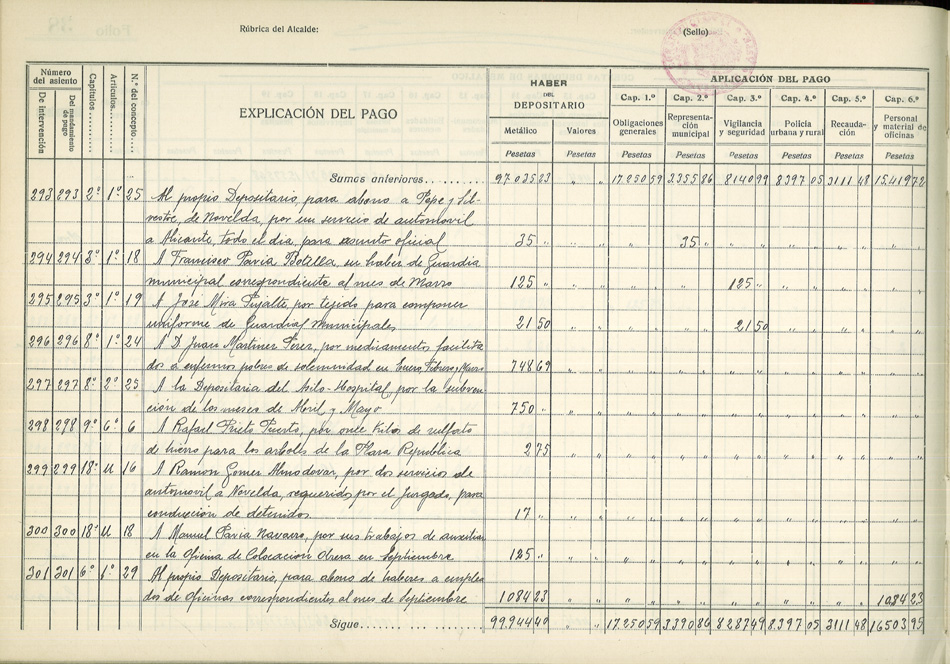 Rúbrica del Alcalde:
(Sello)
Número del asiento
De intervención
Del mandamiento de pago
Capítulos
Artículos
N.º del concepto
EXPLICACIÓN DEL PAGO
HABER DEL DEPOSITARIO
Metálico
Valores
Pesetas
Pesetas
APLICACIÓN DEL PAGO
Cap. 1.º Cap. 2.º Cap. 3.º Cap. 4.º Cap. 5.º Cap. 6.º
Obligaciones generales
Representación municipal
Vigilancia y seguridad
Policía urbana y rural
Recaudación
Personal y material de oficinas
Pesetas Pesetas Pesetas Pesetas Pesetas Pesetas
Sumas anteriores 97035 23 " " 17250 59 3355 86 8140 99 8397 05 3111 48 15419 72
293 293 2º 1º 25 Al propio Depositario para abono a Pepe y Sil-
vestre, de Novelda, por un servicio de automovil
a Alicante, todo el dia, para asunto oficial 35 " 35 "
294 294 3º 1º 18 A Francisco Pavia Botella, su haber de Guardia
municipal correspondiente al mes de Marzo 125 " 125 "
295 295 3º 1º 19 A José Mira Pujalte, por tejido para componer
uniforme de Guardias Municipales 21 50 21 50
296 296 8º 1º 24 A D. Juan Martinez Perez, por medicamentos facilita
dos a enfermos pobres de solemnidad en Enero, Febrero y Marzo 748 69
297 297 8º 2º 25 A la Depositaria del Asilo-Hospital, por la subven
ción de los meses de Abril y Mayo 750 "
298 298 9º 6º 6 A Rafael Prieto Puerto, por once kilos de sulfato
de hierro para los arboles de la Plaza Republica 2 75
299 299 18º U 16 A Ramon Gomez Almodovar, por dos servicios de
automovil a Novelda, requeridos por el Juzgado, para
conduccion de detenidos 17 "
300 300 18º U 18 A Manuel Pavia Navarro, por sus trabajos de auxiliar
en la Oficina de Colocacion Obrera en Septiembre 125 "
301 301 6º 1º 29 Al propio Depositario, para abono de haberes a emplea
dos de Oficinas correspondientes al mes de Septiembre 1084 23 1084 23
Sigue 99944 40 " " 17250 59 3390 86 8287 49 8397 05 3111 48 16503 95